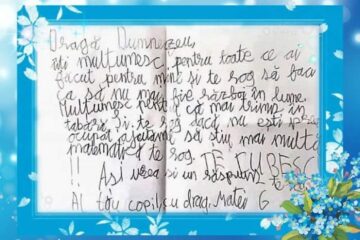 Dragă Dumnezeu,
îți mulțumesc pentru toate ce ai
făcut pentru mine și te rog să faci
ca să nu mai fie război în lume.
Mulțumesc pentru că mai trimis în
tabără și te rog dacă nu ești prea
ocupat ajutămă să știu mai multă
matematică te rog. TE IUBESC
!! Aș vrea și un răspuns te rog
Al tău copil cu drag, Matei G